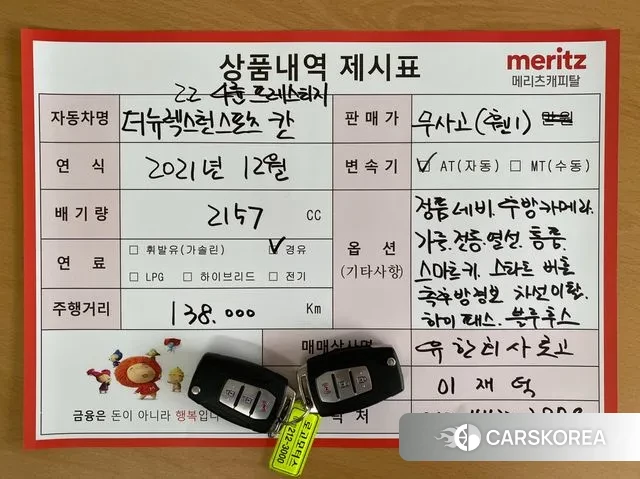 상품내역 제시표
meritz
메리츠캐피탈
22 4륜 프레스티지
자동차명
더뉴렉스턴스포츠 칸
판매가
무사고(휀1) 만원
연 식
2021년 12월
변속기
AT(자동) MT(수동)
배기량
2157 CC
옵 션
(기타사항)
정품 네비. 후방카메라.
가죽.전동.열선.통풍.
스마트키. 스타트 버튼
측후방경보 차선이탈.
하이패스. 블루투스
연 료
휘발유(가솔린) 경유
LPG 하이브리드 전기
주행거리
138.000 Km
매매상사명
이재덕
락처
금융은 돈이 아니라 행복입니
212-3000
CARSKOREA